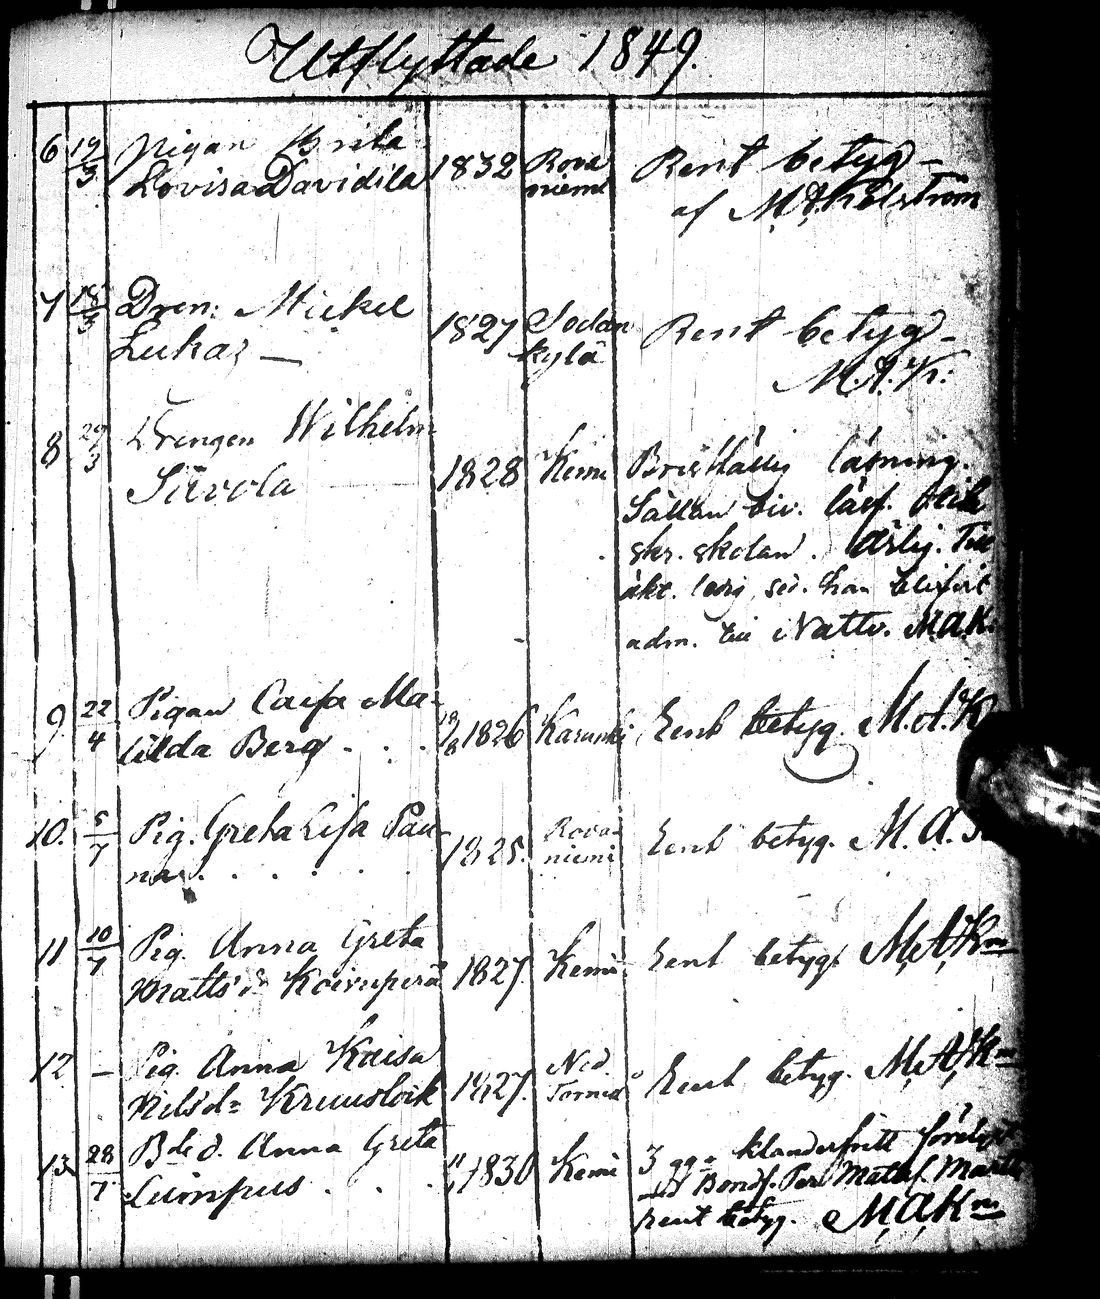 Utflyttade 1849.
6 19/3 Pigan Brita
Lovisa Davidila 1832 Rova
niemi Rent betyg –
af M.A. Keckström
7 18/3 Dren: Mickel
Lukas — 1827 Sodan
kylä Rent betyg –
M.A.K:
8 29/3 Drengen Wilhelm
Siivola 1828 Kemi Bristfällig läsning.
Sällan biv. läsf.
skr. skolan. Årlig. Till
äkt. ledig, sed. han blifvit
adm. till Nattv. M.A.K.
9 22/4 Pigan Caisa Ma-
tilda Berg . . . 1826 Karunki Rent betyg. M.A.K
10. 5/7 Pig. Greta Lisa Pau-
na . . . . . 1825. Rova-
niemi Rent betyg. M.A.
11 10/7 Pig. Anna Greta
Matts dr Koivuperä 1827. Kemi Rent betyg. M.A.Km
12 – Pig. Anna Kaisa
Nils dr Kruuslvik 1827. Ned.
Torneå Rent betyg. M.A.Km
13 28/7 Bde d. Anna Greta
Lumpus . . . 1830 Kemi 3 ggr klanderfritt förelyst
med Bondf. Per Matts.
rent betyg. M.A.Km